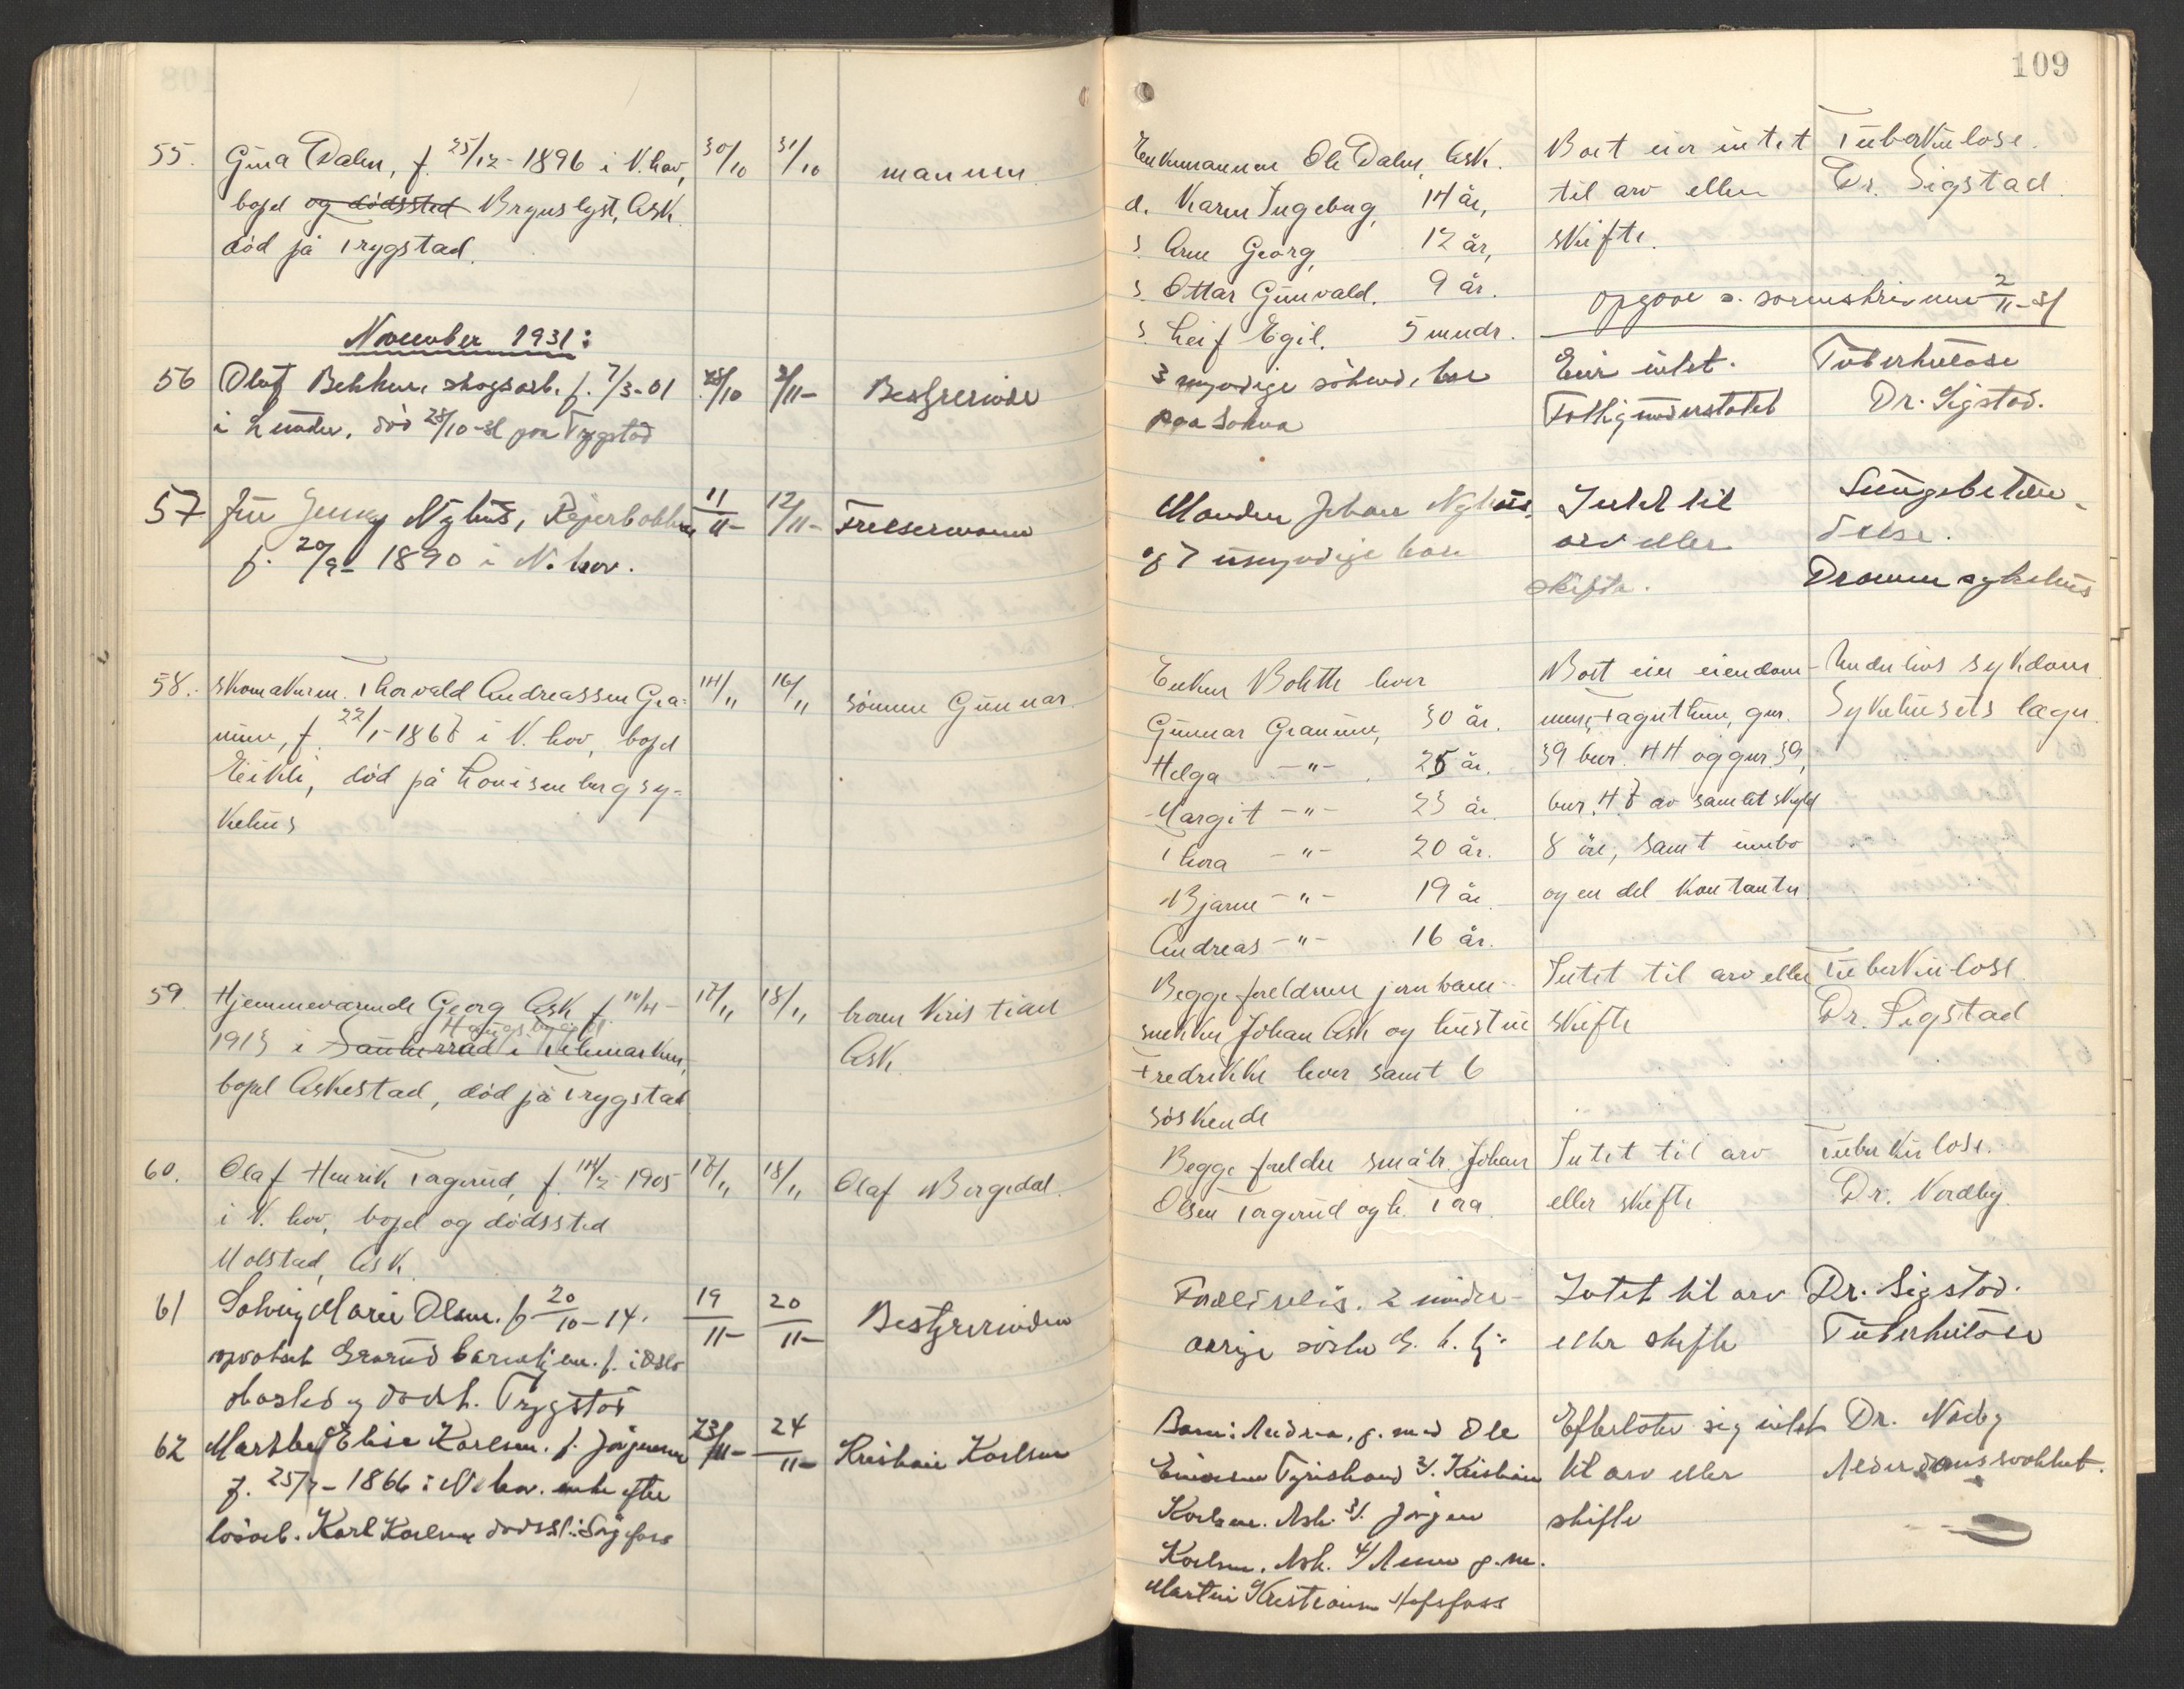 109
55. Gina Dalen, f. 25/12-1896 i N.hov,
bopel og dödssted Brynslyst, Ask
död på Trygstad.
30/10 31/10 mannen
Enkemannen Ole Dalen, Ask.
d. Karen Ingeborg, 14 år,
s. Arne Georg, 12 år,
s. Ottar Gunvald. 9 år.
s. Leif Egil. 5 mndr.
Boet eier intet
til arv eller
skifte.
opgave s. sorenskriveren 2/11-31
Tuberkulose.
Dr. Sigstad
November 1931:
56 Olaf skogsarb. f. 7/3-01
i Lunder. död 28/10-31 paa Trygstad
28/10 2/11- Bestyrerinde
3 myndige söskend, bor
paa Sokna
Eier intet.
Fattigunderstötet
Tuberkulose
Dr. Sigstad.
57 fru Jenny Nyhus,
f. 20/9- 1890 i N. hov.
11/11- 12/11- Frelserarmeen
Manden Johan Nyhus,
og 7 umyndige barn
Intet til
arv eller
skifte.
Lungebeten-
delse.
Drammen sykehus
58. Skomakeren Thorvald Andreassen Gra-
num, f. 22/1-1867 i N. hov, bopel
Eikli, död på Lovisenberg sy-
kehus
14/11 16/11 sönnen Gunnar.
Enken Bolette lever
Gunnar Granum, 30 år.
Helga -"- 25 år.
Margit -"- 23 år.
Thora -"- 20 år.
Bjarne -"- 19 år.
Andreas -"- 16 år.
Boet eier eiendom-
mene Fagerthun, gnr.
39 bnr. 44 og gnr. 39,
bnr. 47 av samlet skyld
8 öre, samt innbo
og en del kontanter
Underlivs sykdom
Sykehusets læge.
59. Hjemmeværende Georg Ask f. 10/4-
1913 i Sauherrad i Telemarken,
bopel Askestad, död på Trygstad
17/11 18/11 broren Kristian
Ask.
Begge foreldrene jernbane-
snekker Johan Ask og hustru
Fredrikke lever samt 6
söskende
Intet til arv eller
skifte
Tuberkulose.
Dr. Sigstad
60. Olaf Henrik Togerud, f. 14/2-1905
i N. hov, bopel og dödssted
Molstad, Ask
17/11 18/11 Olaf Bergedal.
Begge foreldre småbr. Johan
Olsen Togerud og h. Tea.
Intet til arv
eller skifte
Tuberkulose.
Dr. Nordby.
61 Solveig Marie Olsen. f. 20/10-14.
opvokset Grorud barnehjem. f. i Oslo
Trygstad
19/11- 20/11- Bestyrerinden
Foreldrelös. 2 minder-
aarige
Intet til arv
eller skifte
Dr. Sigstad.
Tuberkulose
62 Marthe Elise Karlsen. f. Jörgensen
f. 25/7-1866 i N. hov. enke efter
lösarb. Karl Karlsen
23/11- 24/11- Kristian Karlsen
Barn: Andrea, g. med Ole
Einarsen Tyristrand 2/. Kristian
Karlsen. Ask. 3/. Jörgen
Karlsen. Ask. 4/ Anna g.m.
Martin Kristiansen Hofsfoss
Efterlater sig intet
til arv eller
skifte
Dr. Nordby
Alderdomssvakhet.